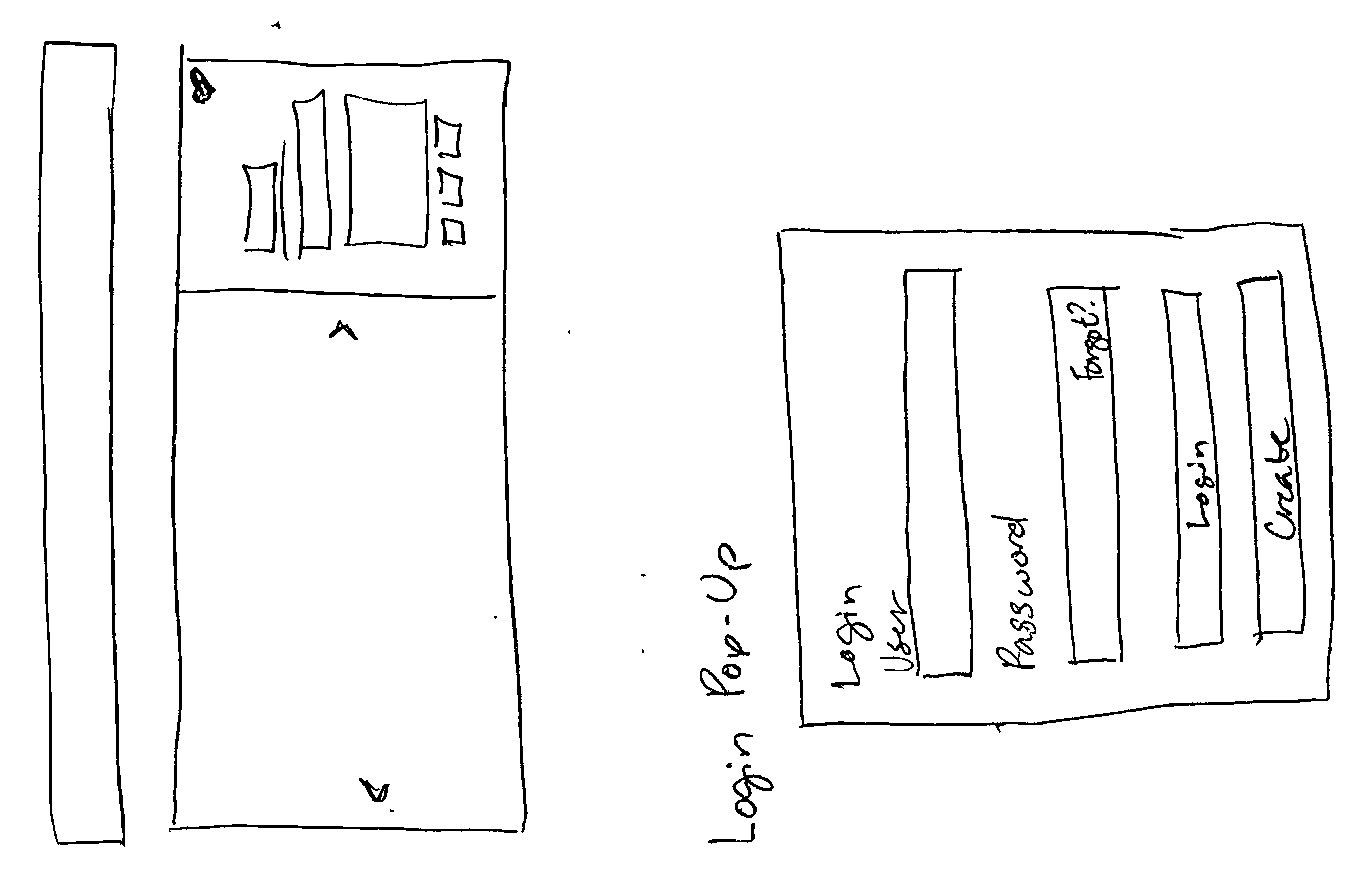 Login Pop-Up
Login
User
Password
Forgot?
Login
Create